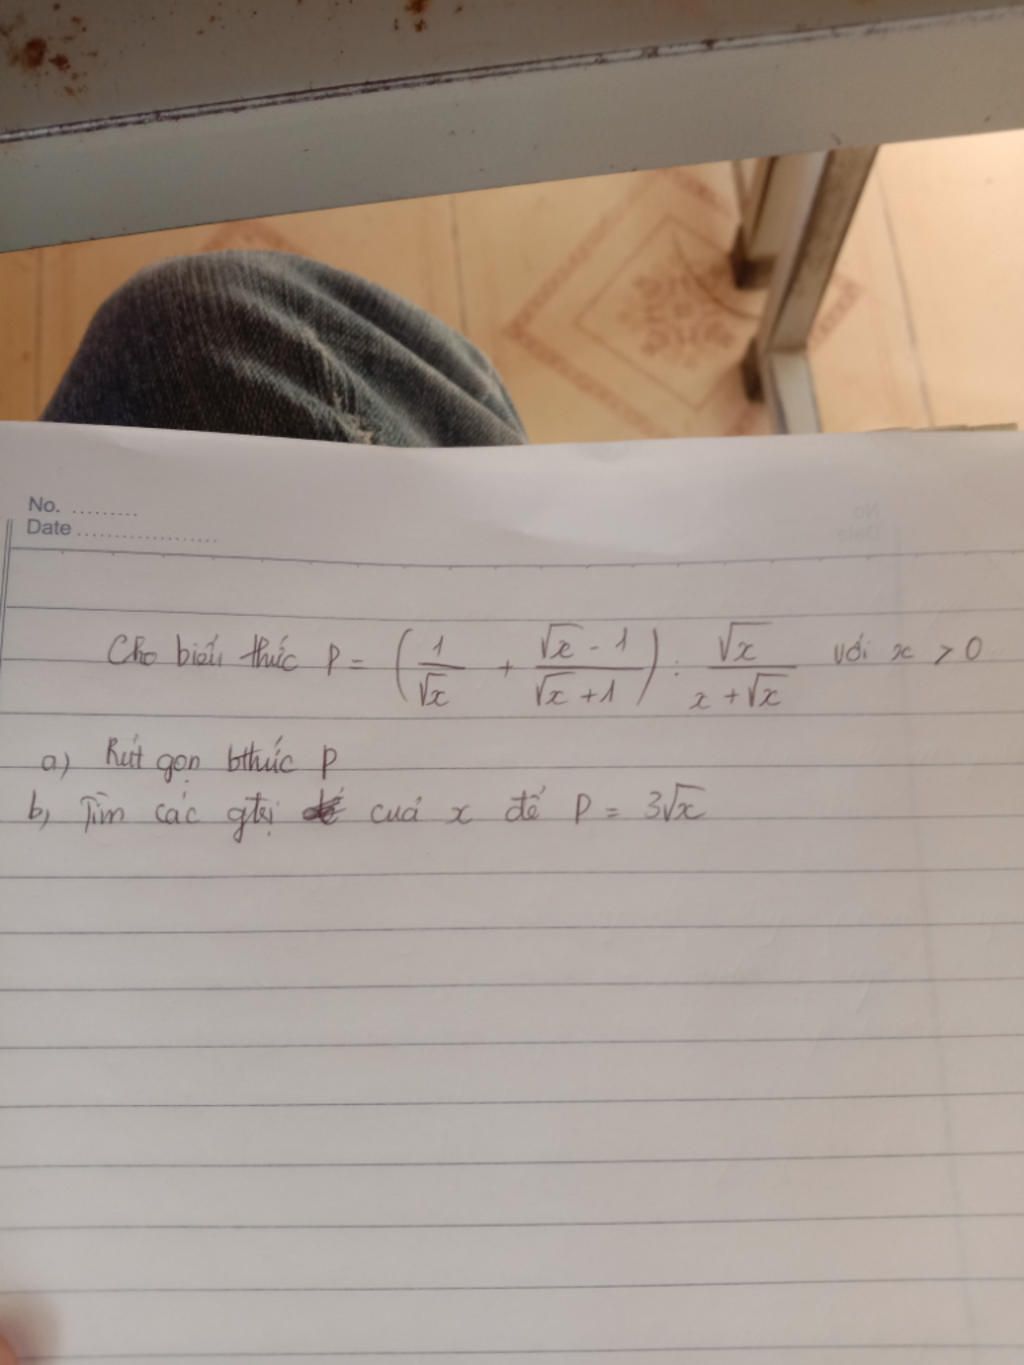 No. .........
Date ...................
Cho biểu thức P = (1/√x + (√x - 1)/(√x + 1)) : √x/(x + √x) với x > 0
a) Rút gọn bthức P
b, Tìm các gtrị của x để P = 3√x